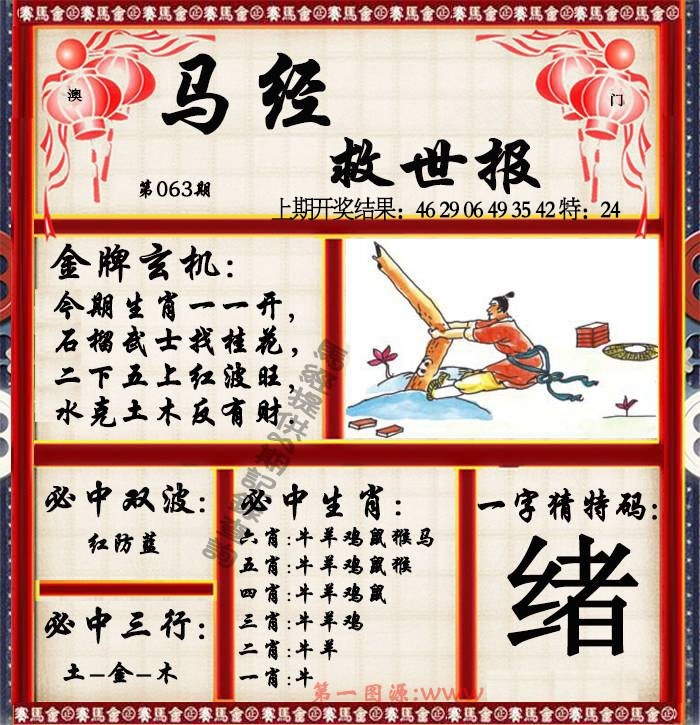 賽馬會 賽馬會 賽馬會 賽馬會 賽馬會 賽馬會 賽馬會 賽馬會
澳 门
马经
救世报
第063期
上期开奖结果：46 29 06 49 35 42 特：24
金牌玄机：
今期生肖一一开，
石榴武士找桂花，
二下五上红波旺，
水克土木反有财．
必中双波：
红防蓝
必中三行：
土－金－木
必中生肖：
六肖：牛羊鸡鼠猴马
五肖：牛羊鸡鼠猴
四肖：牛羊鸡鼠
三肖：牛羊鸡
二肖：牛羊
一肖：牛
一字猜特码：
绪
第一图源：www